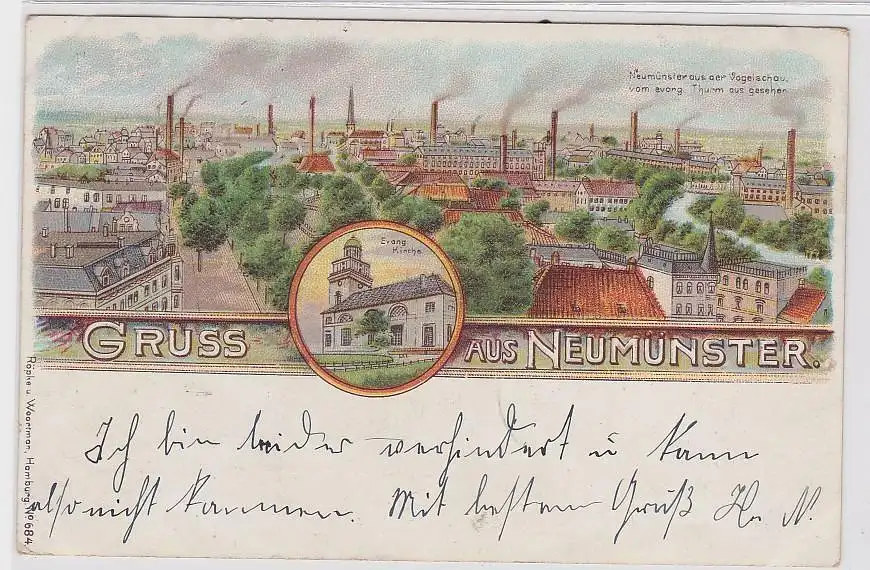 Neumünster aus der Vogelschau.
vom evang. Thurm aus gesehen
Evang.
Kirche
GRUSS AUS NEUMÜNSTER.
Ich bin leider verhindert u kann
also nicht kommen. Mit bestem Gruß H. N.
Röpke u. Woortman, Hamburg. No 684.